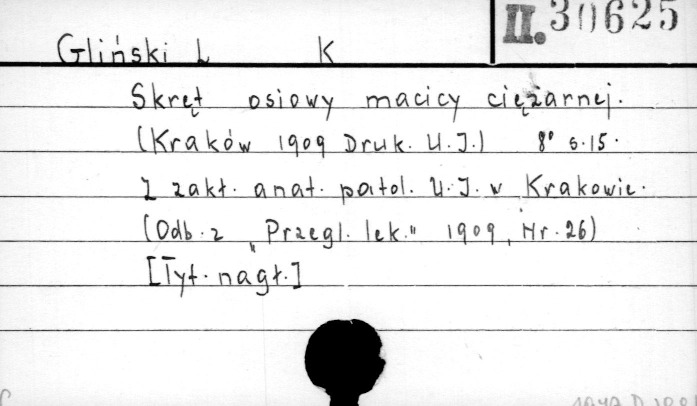 II. 30625
Gliński L K
Skręt osiowy macicy ciężarnej.
(Kraków 1909 Druk. U.J.) 8° s.15.
Z zakł. anat. patol. U.J. w Krakowie.
(Odb. z "Przegl. lek." 1909, Nr. 26)
[Tyt. nagł.]